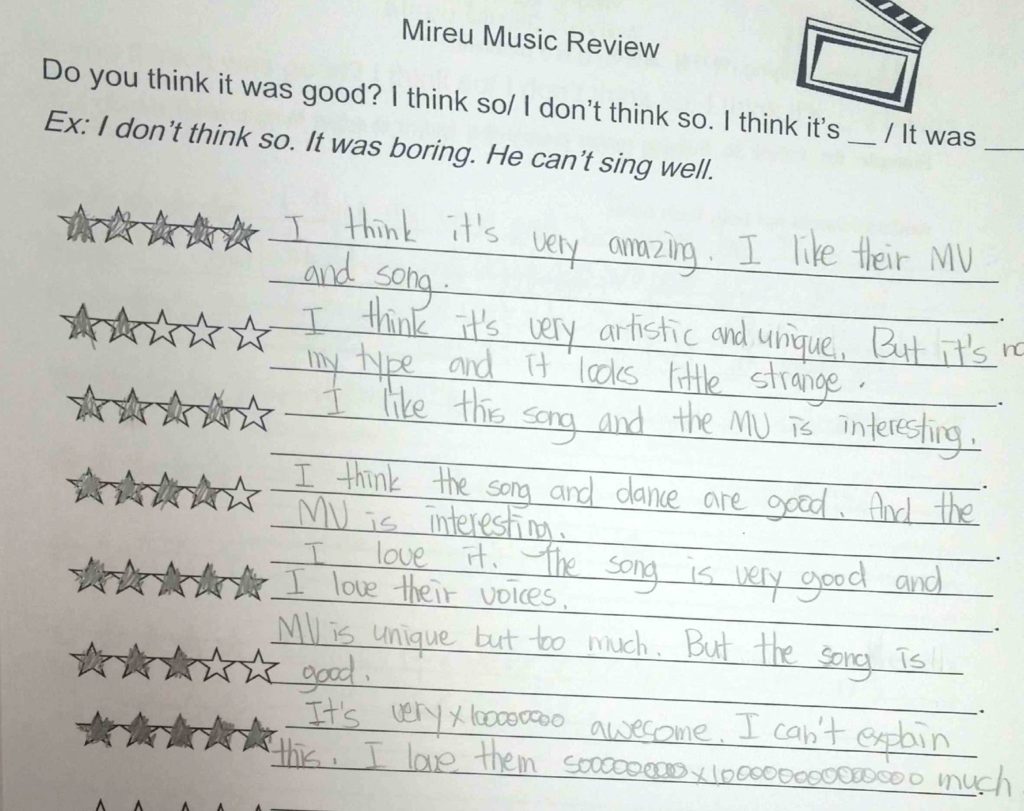 Mireu Music Review
Do you think it was good? I think so/ I don't think so. I think it's __ / It was ___
Ex: I don't think so. It was boring. He can't sing well.
I think it's very amazing. I like their MV
and song.
I think it's very artistic and unique. But it's no
my type and it looks little strange.
I like this song and the MV is interesting.
I think the song and dance are good. And the
MV is interesting.
I love it. The song is very good and
I love their voices.
MV is unique but too much. But the song is
good.
It's very x100000000 awesome. I can't explain
this. I love them sooooooooo x10000000000000 much